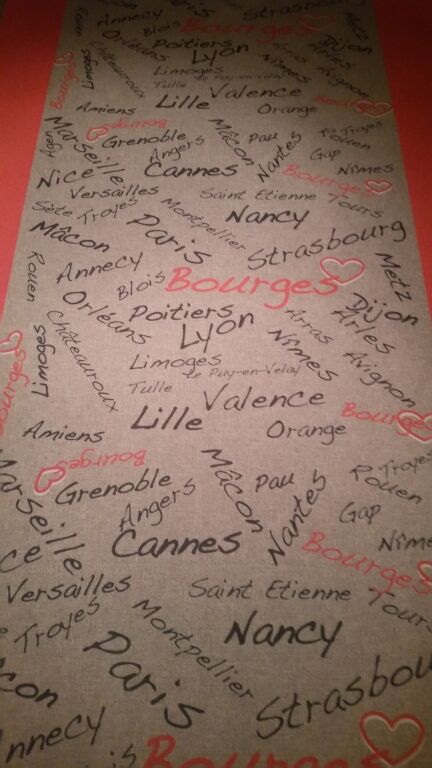 Paris
Strasbourg
Metz
Annecy
Blois
Bourges
Dijon
Orléans
Poitiers
Lyon
Arras
Arles
Limoges
Châteauroux
Limoges
Le Puy-en-Velay
Nîmes
Avignon
Tulle
Valence
Bourges
Lille
Orange
Bourges
Amiens
Bourges
Marseille
Grenoble
Mâcon
Pau
Troyes
Rouen
Agen
Angers
Nantes
Gap
Nice
Cannes
Bourges
Nîmes
Versailles
Saint Etienne
Tours
Sète
Troyes
Montpellier
Nancy
Mâcon
Paris
Strasbourg
Rouen
Annecy
Blois
Bourges
Metz
Orléans
Poitiers
Dijon
Lyon
Arras
Arles
Limoges
Châteauroux
Limoges
Le Puy-en-Velay
Nîmes
Avignon
Tulle
Valence
Bourges
Lille
Bourges
Amiens
Orange
Bourges
Marseille
Grenoble
Mâcon
Pau
Troyes
Rouen
Angers
Nantes
Gap
Cannes
Bourges
Nîme
ce
Versailles
Saint Etienne
Tours
Troyes
Montpellier
Nancy
con
Paris
Strasbou
nnecy
Bourges